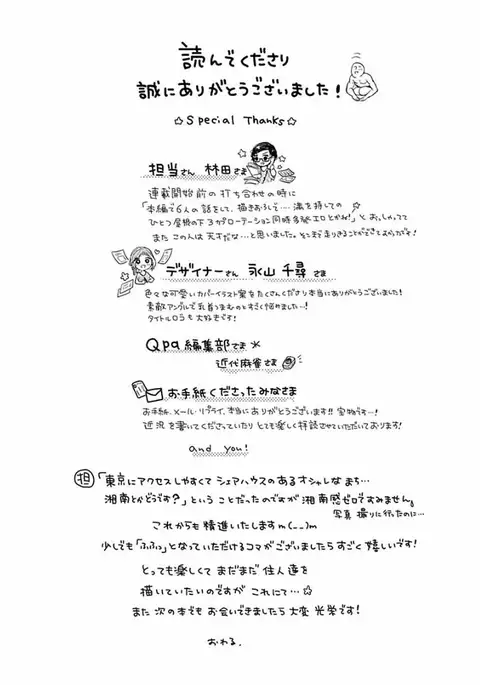 読んでくださり
誠にありがとうございました!
☆Special Thanks☆
担当さん 林田さま
連載開始前の打ち合わせの時に
「本編で6人の話をして、描きおろしで…満を持しての
ひとつ屋根の下3カプローテーション同時多発エロとかね!」とおっしゃってて
またこの人は天才だな…と思いました。そこまで走りきることができてよかったです!
デザイナーさん 永山 千尋さま
色々な可愛いカバーイラスト案をたくさんくださり本当にありがとうございました!
素敵アングルで乳首つまむのとすごく悩めました…!
タイトルロゴも大好きです!
Qpa編集部さま
近代麻雀さま
お手紙くださったみなさま
お手紙、メール・リプライ、本当にありがとうございます!!宝物です…!
近況を書いてくださっていたりとても楽しく拝読させていただいております!
and you!
担「東京にアクセスしやすくてシェアハウスのあるオシャレなまち…
湘南とかどうです?」ということだったのですが湘南感ゼロですみません。
写真撮りに行ったのに…
これからも精進いたしますm(__)m
少しでも「ふふっ」となっていただけるコマがございましたらすごく嬉しいです!
とっても楽しくてまだまだ住人達を
描いていたいのですがこれにて…☆
また次の本でもお会いできましたら大変光栄です!
おわる。